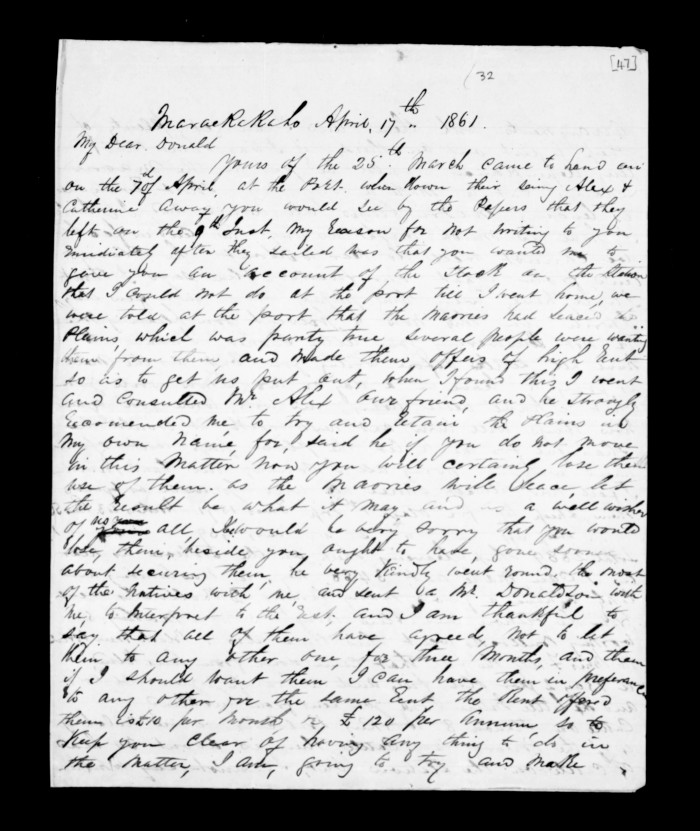 [47]
32
Maraekakaho April, 17th " 1861.
My Dear Donald
Yours of the 25th March came to hand on
on the 7d of April, at the Port. when down their seing Alex &
Catherine away, you would see by the Papers that they
left on the 9th Inst, My Reason for not writing to you
immidiately after they sailed was that you wanted me to
give you an account of the stock on the Station
that I could not do at the port till I went home, we
were told at the port that the Maories had leaced the
Plains, which was partly true several people were wanting
them from them, and made them offers of high Rent
so as to get us put out, when I found this I went
and Consulted Mr. Alex our friend, and he strongly
Recomended me to try and Retain the Plains in
My own name, for, said he if you do not move
in this Matter now you will certainly lose the
use of them. as the Maories will leace let
the Result be what it may, and as a well wisher
of us all, he would be very sorry that you would
lose them, beside you ought to have gone sooner
about securing them, he very kindly went round the most
of the Natives with me, and sent a Mr. Donaldson with
me, to Interpret to the Rest. and I am thankful to
say that all of them have agreed, not to let
them to any other one, for three Months, and then
if I should want them I can have them in preferance
to any other for the same Rent the Rent offered
them is £10 per Month or £120 per Annum so to
Keep you clear of having any thing to do in
the Matter, I am, going to try and make